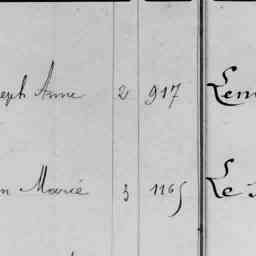 eph Anne 2 917 Lem
n Marie 3 1165 Le